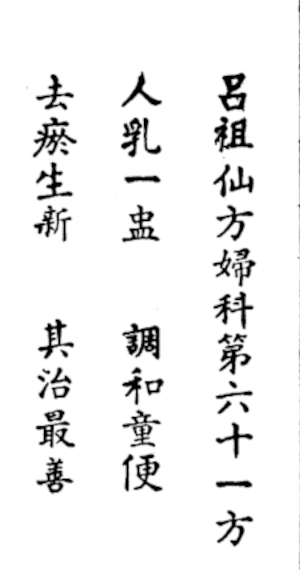 呂祖仙方婦科第六十一方
人乳一盅　調和童便
去瘀生新　其治最善